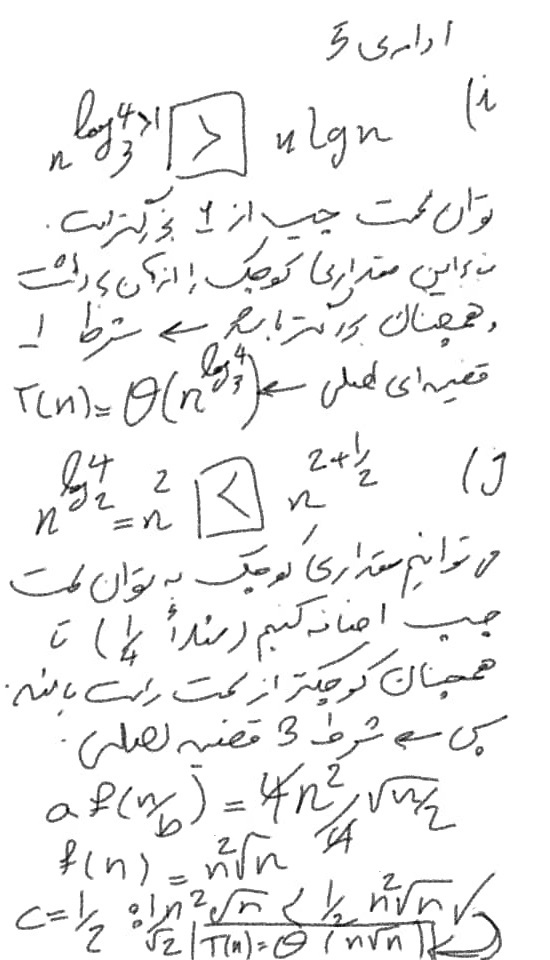 ادامه‌ی 5
i) n^{log_3^4 > 1} > n lg n
توان سمت چپ از 1 بزرگتر است.
بنابراین مقداری کوچک را از آن
و همچنان بزرگتر باشد ← شرط 1
قضیه‌ای اصلی ← T(n) = θ(n^{log_3^4})
j) n^{log_2^4} = n^2 < n^{2+1/2}
می‌توانیم مقداری کوچک به توان سمت
چپ اضافه کنیم (مثلاً 1/4) تا
همچنان کوچکتر از سمت راست باشد.
پس ← شرط 3 قضیه اصلی.
a f(n/b) = 4 n^2/4 √n/2
f(n) = n^2 √n
c = 1/2 : 1/√2 n^2 √n < 1/2 n^2 √n ✓
T(n) = θ(n√n)